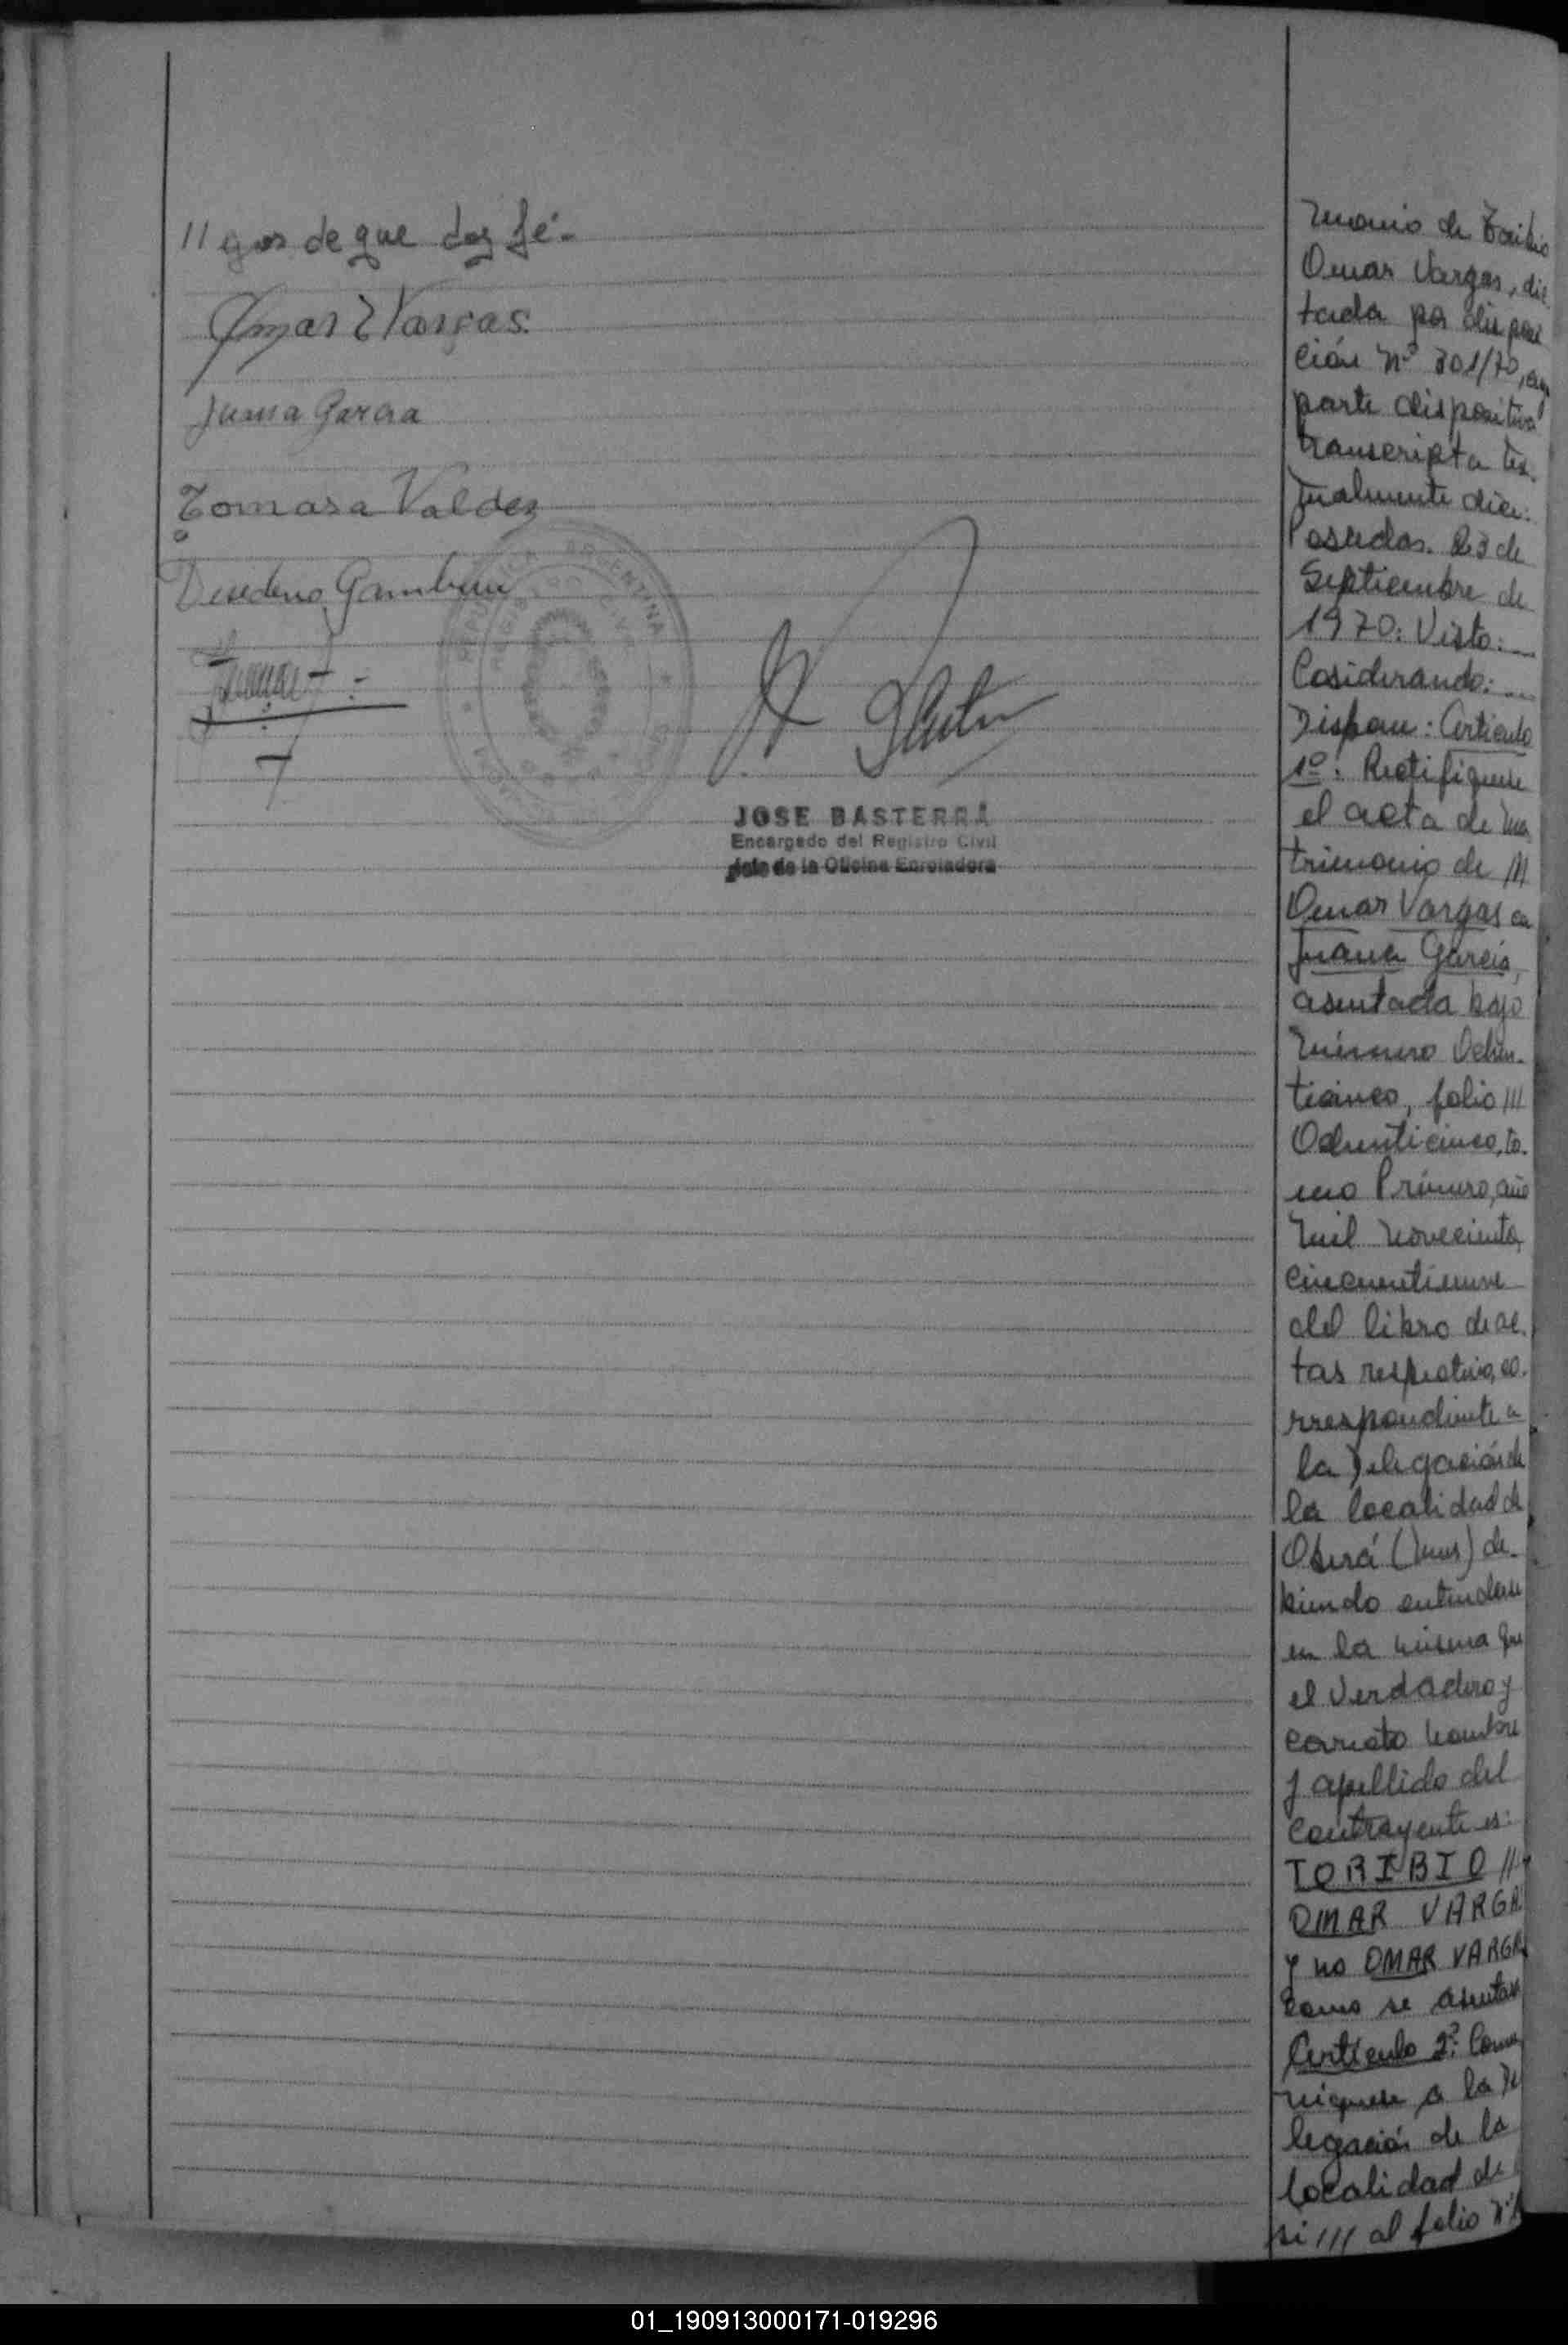 //gos de que doy fé-
Omar Vargas
Juana Garcia
Tomasa Valdez
Desiderio
REPUBLICA ARGENTINA
REGISTRO CIVIL
JOSE BASTERRA
Encargado del Registro Civil
Jefe de la Oficina Enroladora
monio de Toribio
Omar Vargas, dic
tada por disposi
ción Nº 301/70,
parte dispositiva
transcripta tex-
tualmente dice:
Posadas. 23 de
Septiembre de
1970: Visto:...
Cosiderando:...
Dispone: Artículo
1º: Rectifiquese
el acta de ma
trimonio de ///
Omar Vargas con
Juana García,
asentada bajo
número Ochen-
ticinco, folio ///
Ochenticinco, to-
mo Primero, año
mil novecientos
cincuentinueve
del libro de ac-
tas respectivo, co-
rrespondiente a
la Delegación de
la localidad de
Oberá (Mnes) de-
biendo entenderse
en la misma que
el verdadero y
correcto nombre
y apellido del
contrayente es:
TORIBIO //
OMAR VARGAS
y no OMAR VARGAS
como se asentara
Artículo 2º: Comu
niquese a la De
legación de la
localidad de
si /// al folio
01_190913000171-019296